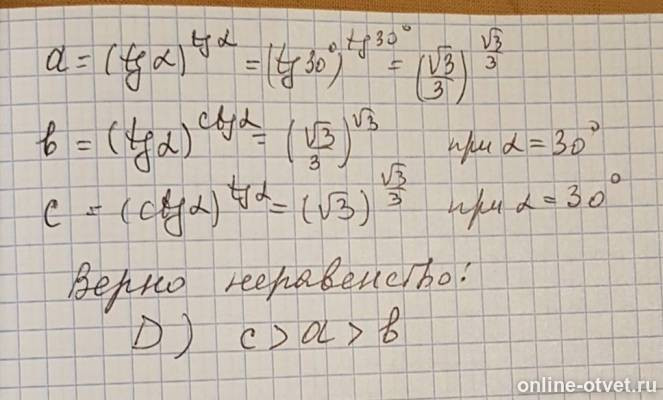 a = (tg α)^tg α = (tg 30°)^tg 30° = (√3/3)^√3/3
b = (tg α)^ctg α = (√3/3)^√3 при α = 30°
c = (ctg α)^tg α = (√3)^√3/3 при α = 30°
Верно неравенство:
D) c > a > b
online-otvet.ru